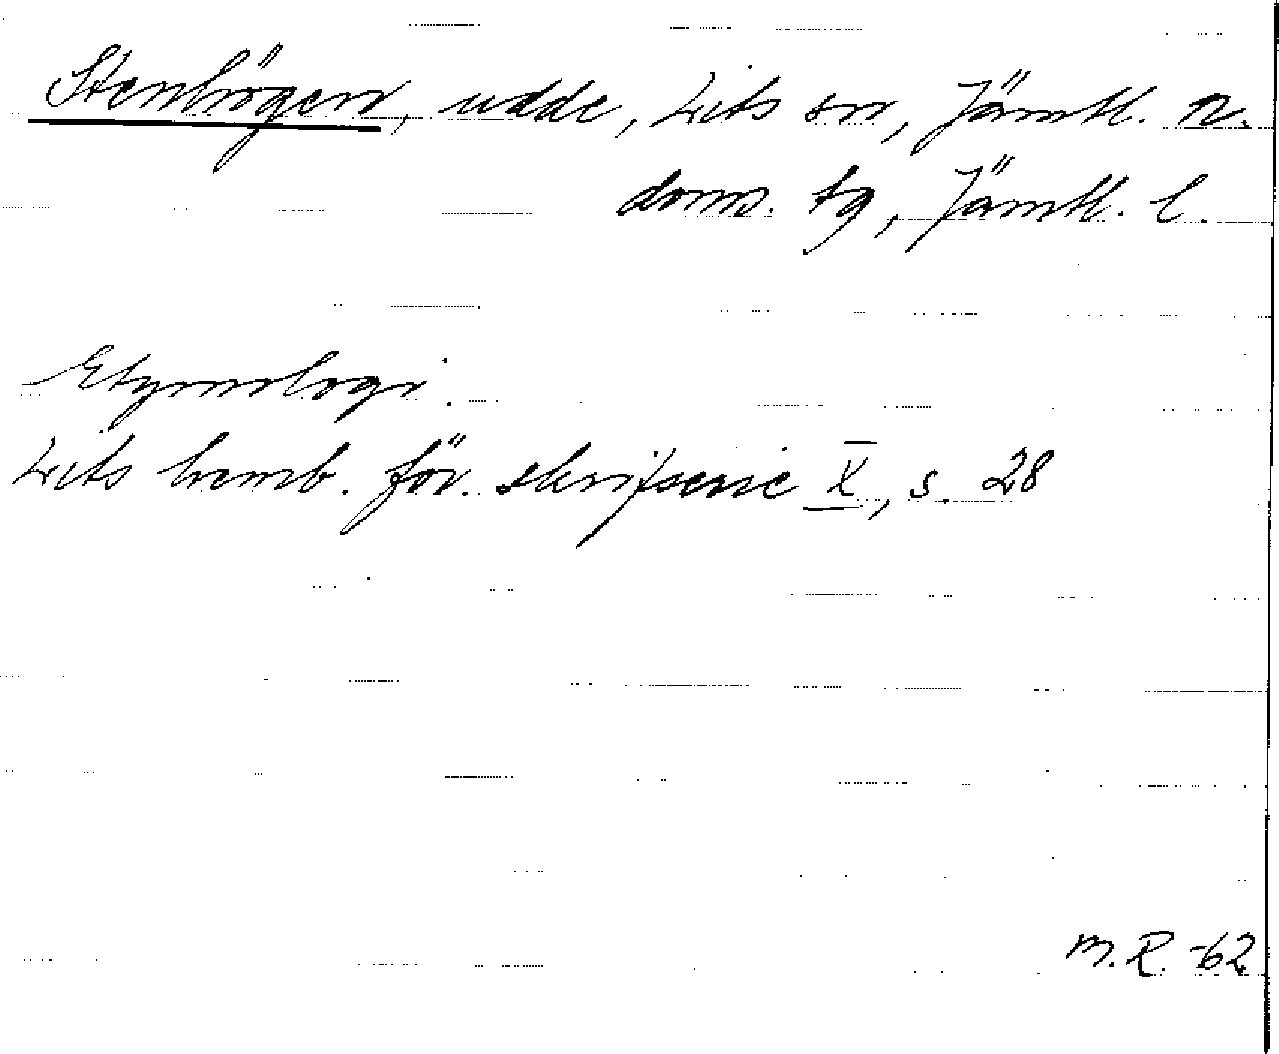 Stenhögen, udde, Lits sn, Jämtl. n.
doms. tg, Jämtl. l.
Etymologi:
Lits hemb. för. skriftserie X, s. 28
M.R. -62